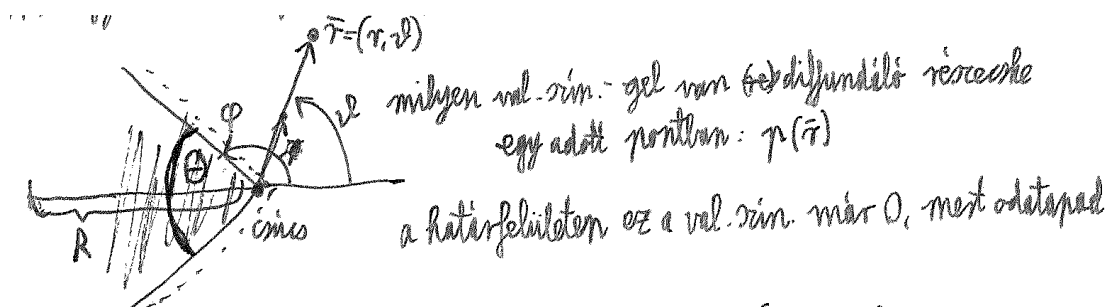 r̄=(r,ϑ)
milyen val.szín.-gel van diffundáló részecske
egy adott pontban: p(r̄)
φ
ϑ
Θ
csúcs
R
a határfelületen ez a val.szín. már 0, mert odatapad